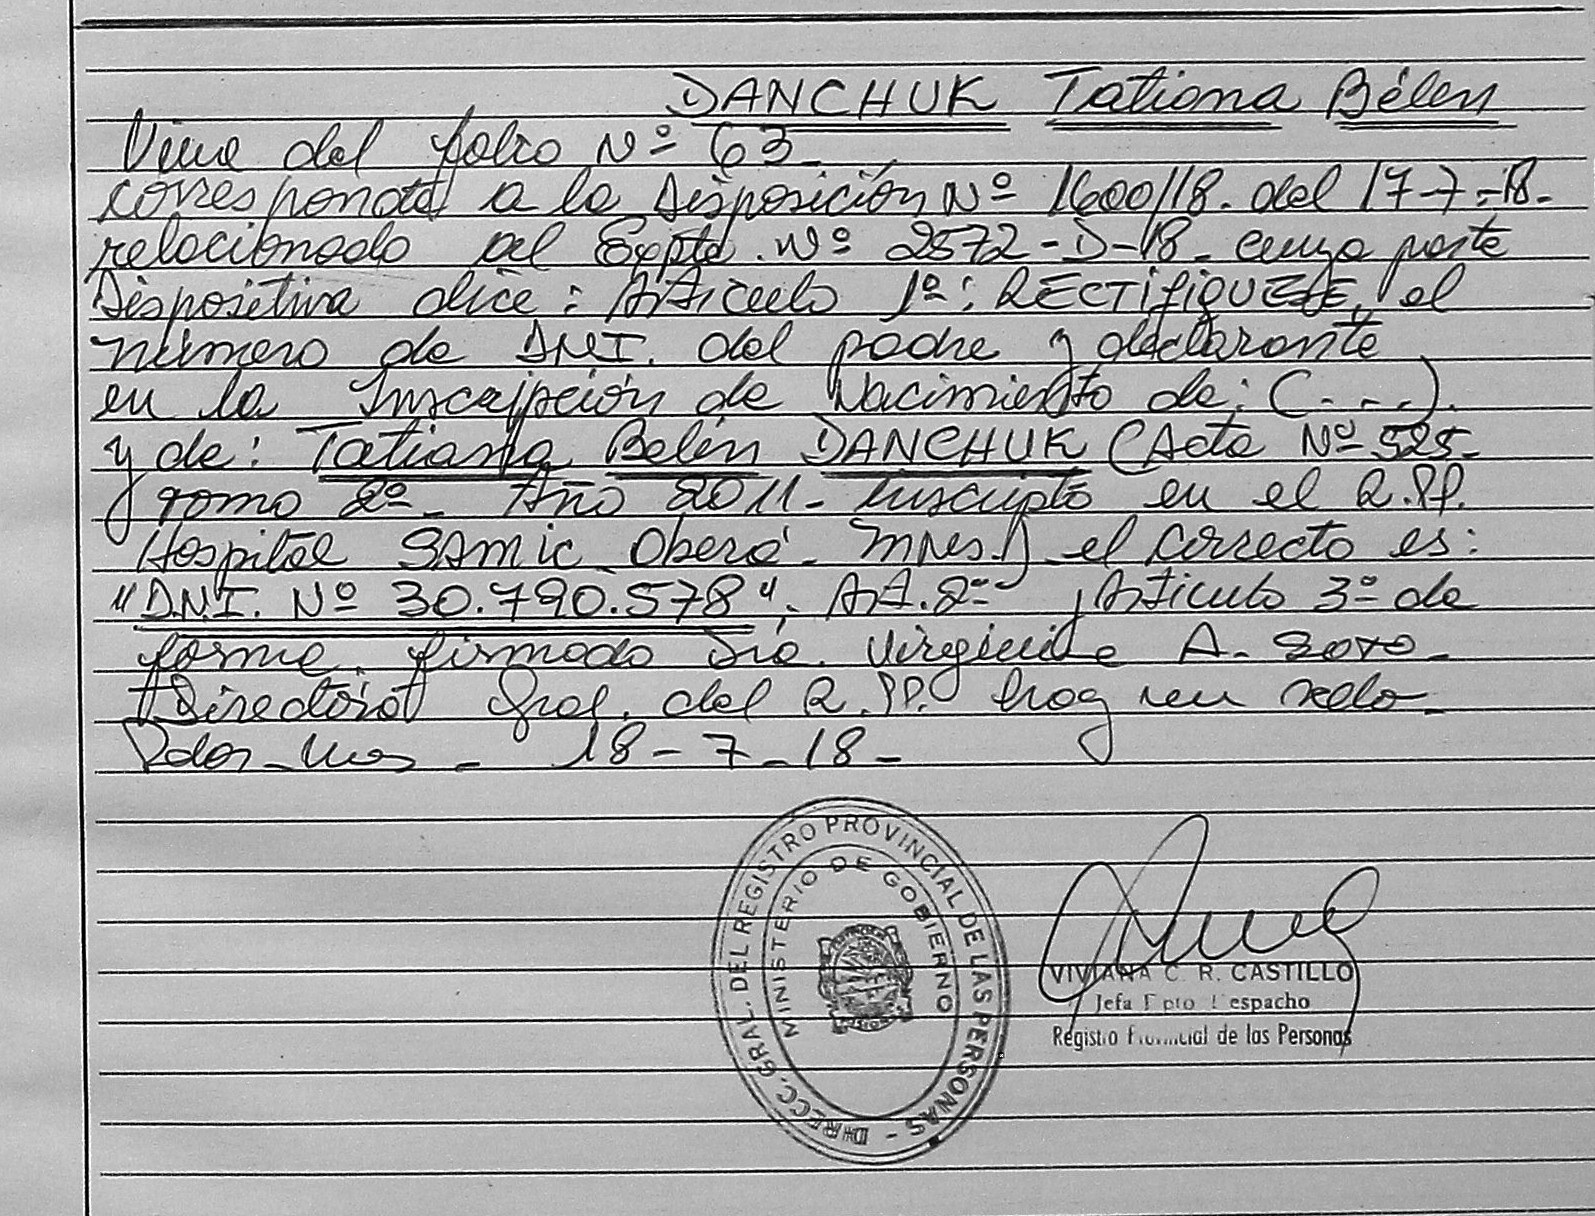 DANCHUK Tatiana Bélen
Viene del folio Nº 63-
corresponde a la Disposición Nº 1600/18. del 17-7-18-
relacionado al Expte. Nº 2572-D-18- cuya parte
Dispositiva dice: Articulo 1º: RECTIFIQUESE, el
número de DNI. del padre y declarante
en la Inscripción de Nacimiento de: (...).
y de: Tatiana Belén DANCHUK (Acta Nº 525-
Tomo 2º- Año 2011- inscripto en el R.PP.
Hospital SAMIC Oberá- Mnes.) el correcto es:
"D.N.I. Nº 30.790.578", Art. 2º- Articulo 3º de
forma, firmado Dra. Virginia A. Soto-
Directora Gral. del R.PP. hay un sello-
Pdas-Mnes - 18-7-18-
DIRECC. GRAL. DEL REGISTRO PROVINCIAL DE LAS PERSONAS -
MINISTERIO DE GOBIERNO
VIVIANA C. R. CASTILLO
Jefa Dpto Despacho
Registro Provincial de las Personas